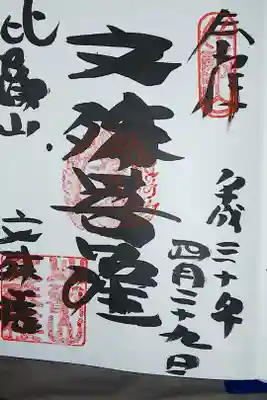 奉拝
平成三十年
四月二十九日
文殊菩薩
比叡山
文殊楼